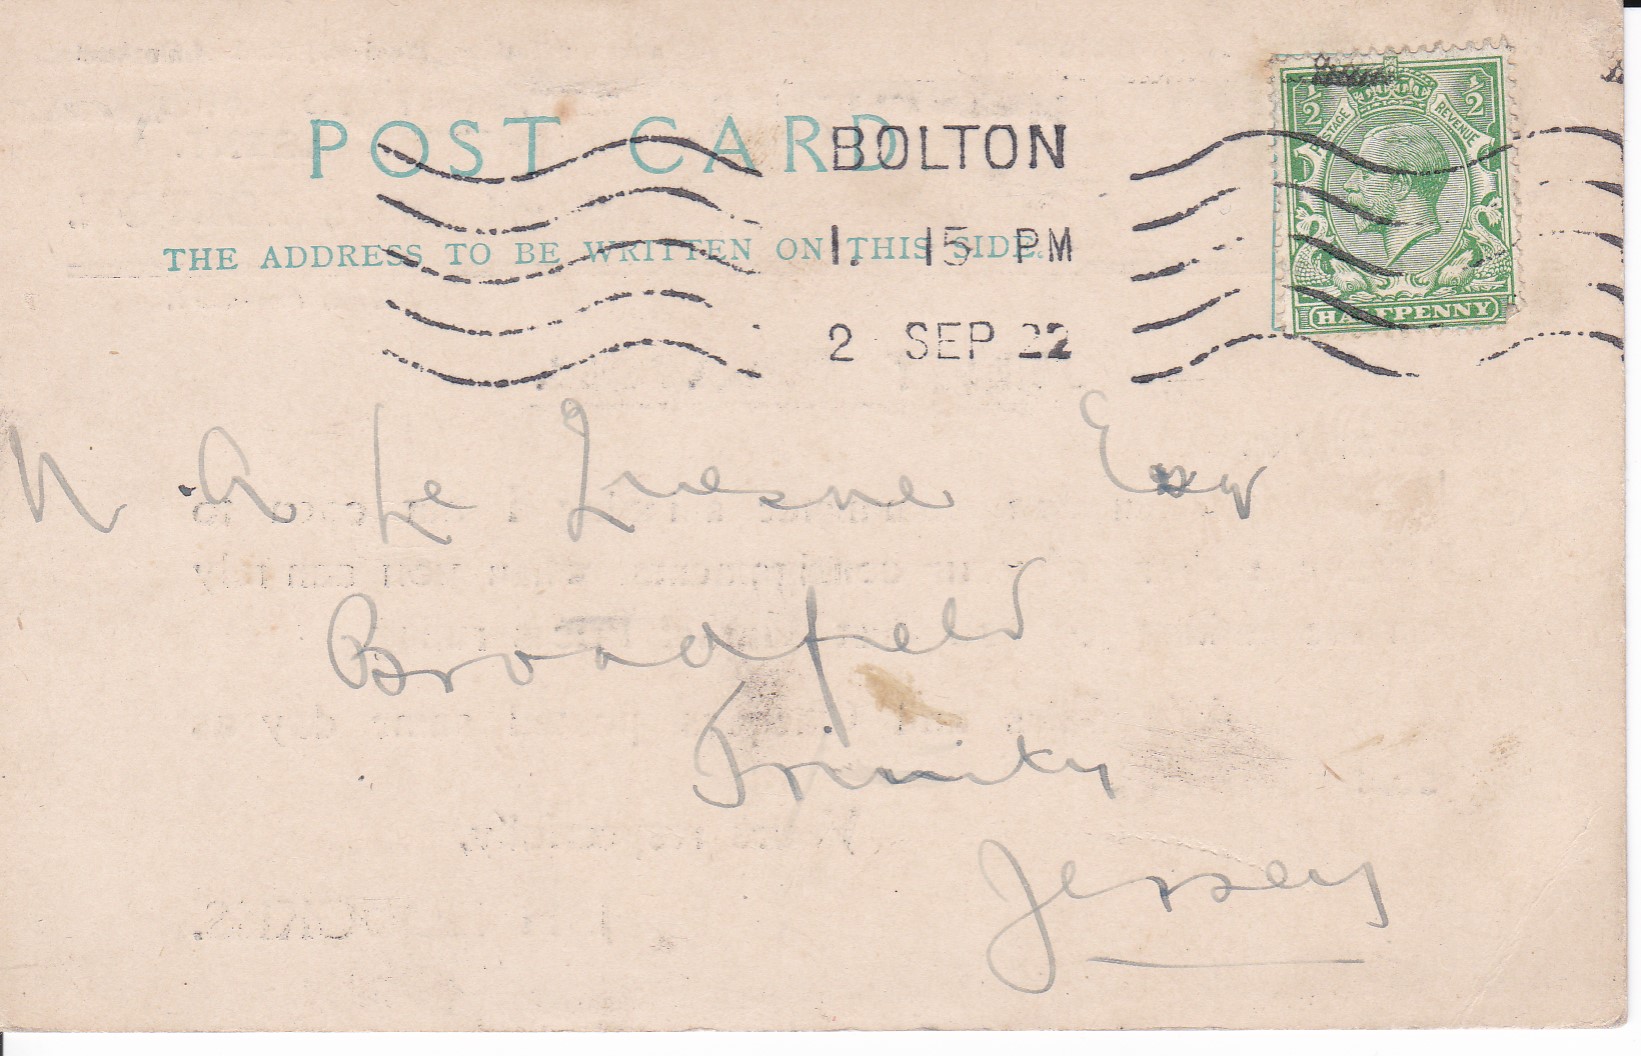 POST CARD
THE ADDRESS TO BE WRITTEN ON THIS SIDE.
BOLTON
1. 15 PM
2 SEP 22
1/2 1/2
POSTAGE REVENUE
HALFPENNY
N. A Le Quesne Esq
Broadfield
Trinity
Jersey